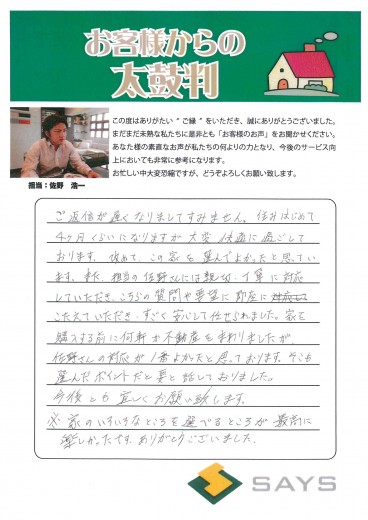 お客様からの
太鼓判
この度はありがたい“ご縁”をいただき、誠にありがとうございました。
まだまだ未熟な私たちに是非とも「お客様のお声」をお聞かせください。
あなた様の素直なお声が私たちの何よりの力となり、今後のサービス向
上においても非常に参考になります。
お忙しい中大変恐縮ですが、どうぞよろしくお願い致します。
担当：佐野 浩一
ご返信が遅くなりましてすみません。住みはじめて
4ヶ月くらいになりますが大変快適に過ごして
おります。改めて、この家を選んでよかったと思ってい
ます。また、担当の佐野さんには親切・丁寧に対応
していただき、こちらの質問や要望に即座に
こたえていただき、すごく安心して任せられました。家を
購入する前に何軒か不動産をまわりましたが
佐野さんの対応が1番よかったと思っております。そこも
選んだポイントだと妻と話しておりました。
今後とも宜しくお願い致します。
※家のいろいろなところを選べるところが最高に
楽しかったです。ありがとうございました。
SAYS